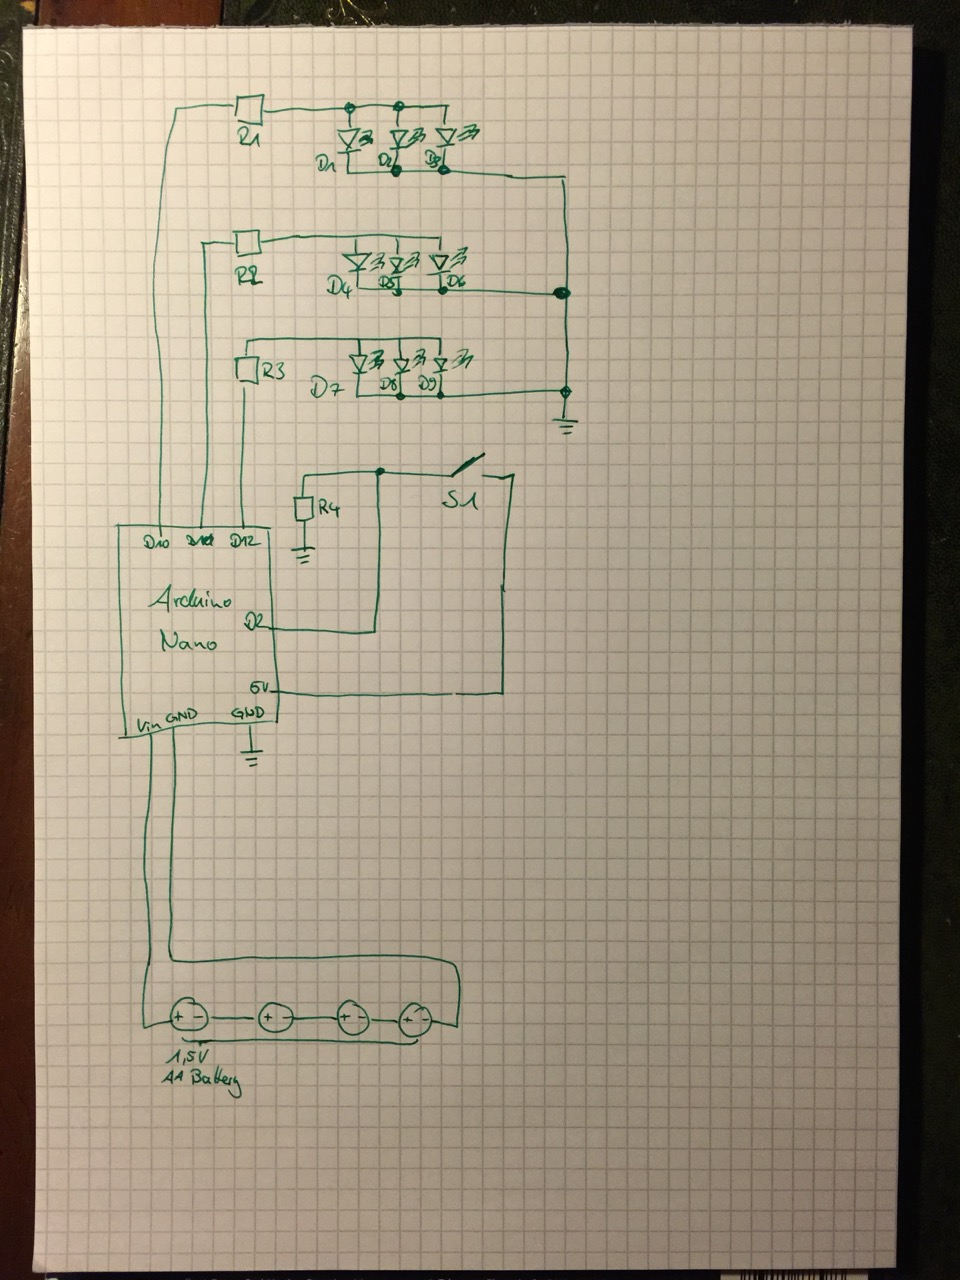 R1
D1 D2 D3
R2
D4 D5 D6
R3
D7 D8 D9
R4
S1
D10 D12
Arduino
Nano
D2
5V
Vin GND GND
+ - + - + - + -
1,5V
AA Battery